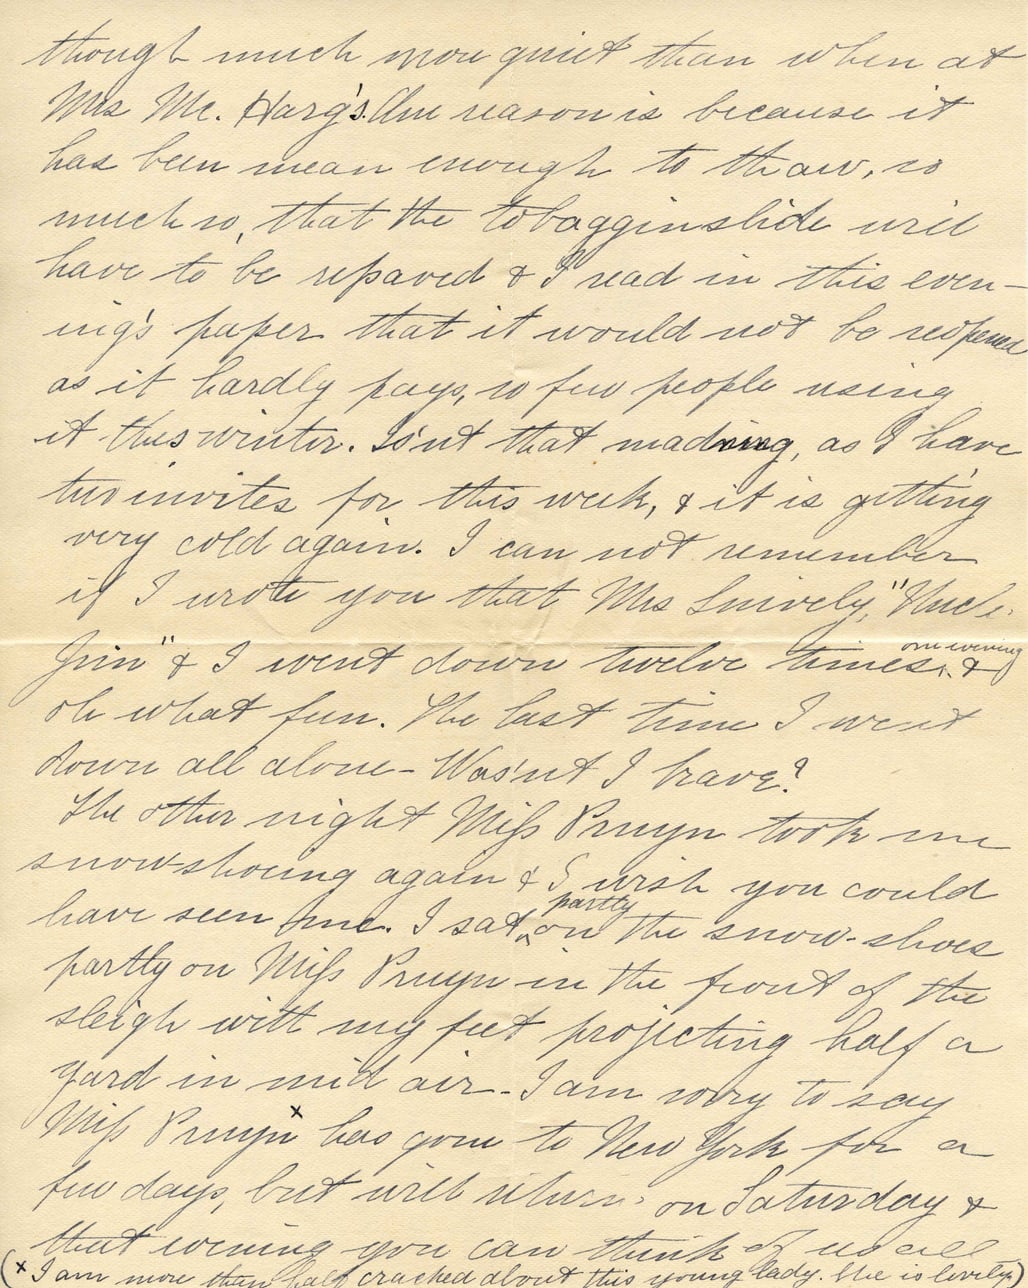 though much more quiet than when at
Mrs Mc. Harg's. One reason is because it
has been mean enough to thaw, so
much so, that the tobagginslide will
have to be repaved & I read in this even-
ing's paper that it would not be reopened
as it hardly pays, so few people using
it this winter. Is'nt that madning, as I have
two invites for this week, & it is getting
very cold again. I can not remember
if I wrote you that Mrs Snively, "Uncle
Jim" & I went down twelve times one evening, &
oh what fun. The last time I went
down all alone - Was'nt I brave?
The other night Miss Pruyn took me
snow-shoeing again & I wish you could
have seen me. I sat partly on the snow-shoes
partly on Miss Pruyn in the front of the
sleigh with my feet projecting half a
yard in mid air - I am sorry to say
Miss Pruyn x has gone to New York for a
few days, but will return on Saturday &
that evening you can think of us all
(x I am more than half cracked about this young lady. She is lovely)